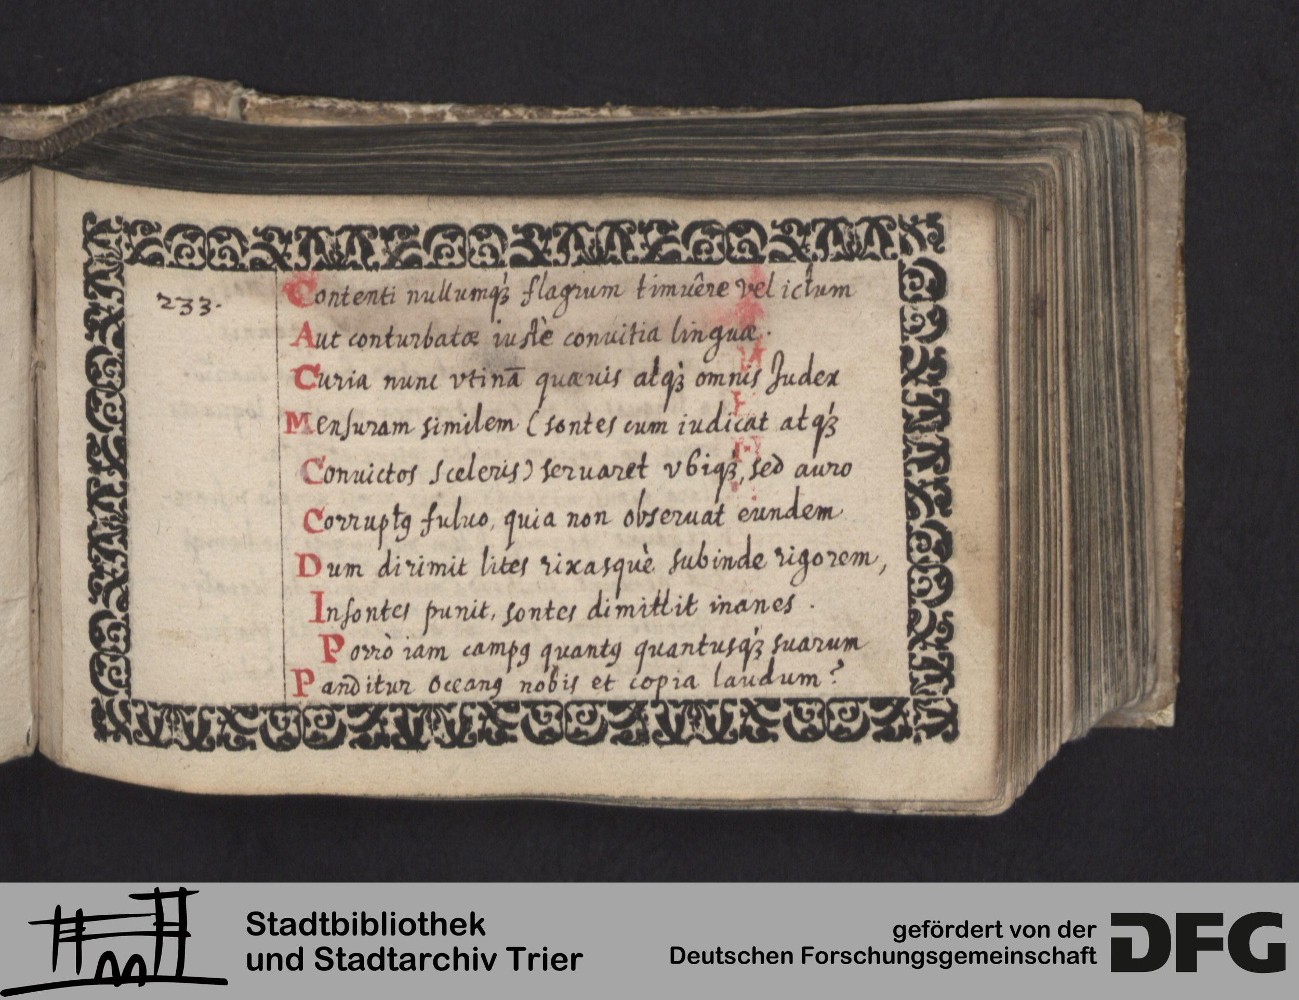 233.
Contenti nullumq́; flagrum timuêre vel ictum
Aut conturbatæ iustè conuitia linguæ.
Curia nunc vtinā quæuis atq́; omnis Judex
Mensuram similem (sontes cum iudicat atq́;
Conuictos sceleris) seruaret vbiq́;, sed auro
Corruptꝯ fuluo, quia non obseruat eundem
Dum dirimit lites rixasquè subinde rigorem,
Insontes punit, sontes dimittit inanes.
Porrò iam campꝯ quantꝯ quantusq́; suarum
Panditur Oceanꝯ nobis et copia laudum?
Stadtbibliothek
und Stadtarchiv Trier
gefördert von der
Deutschen Forschungsgemeinschaft
DFG